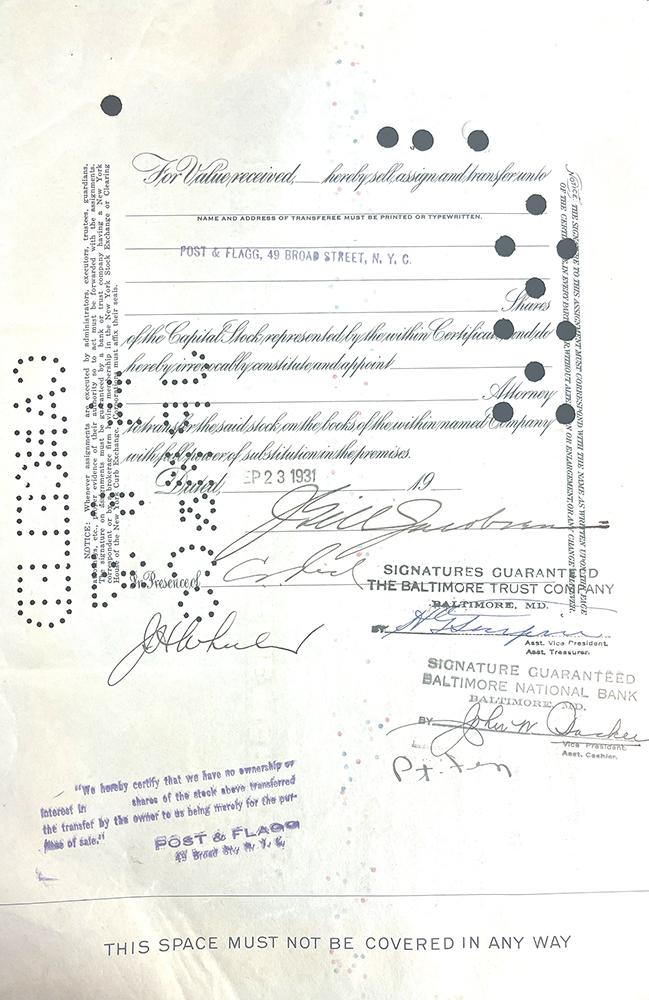 For Value received, hereby sell, assign and transfer unto
NAME AND ADDRESS OF TRANSFEREE MUST BE PRINTED OR TYPEWRITTEN.
POST & FLAGG, 49 BROAD STREET, N. Y. C.
Shares
of the Capital Stock represented by the within Certificate and do
hereby irrevocably constitute and appoint
Attorney
to transfer the said stock on the books of the within named Company
with full power of substitution in the premises.
Dated, EP 23 1931 19
In Presence of
NOTICE: Whenever assignments are executed by administrators, executors, trustees, guardians,
etc., proper evidence of their authority so to act must be forwarded with the assignments.
The signature on assignments must be guaranteed by a bank or trust company having a New York
correspondent or by a brokerage firm having membership in the New York Stock Exchange or Clearing
House of the New York Curb Exchange. Corporations must affix their seals.
NOTICE: THE SIGNATURE TO THIS ASSIGNMENT MUST CORRESPOND WITH THE NAME AS WRITTEN UPON THE FACE
OF THE CERTIFICATE IN EVERY PARTICULAR WITHOUT ALTERATION OR ENLARGEMENT OR ANY CHANGE WHATEVER.
SIGNATURES GUARANTEED
THE BALTIMORE TRUST COMPANY
BALTIMORE, MD.
BY
Asst. Vice President.
Asst. Treasurer.
SIGNATURE GUARANTEED
BALTIMORE NATIONAL BANK
BALTIMORE, MD.
BY John W
Vice President.
Asst. Cashier.
"We hereby certify that we have no ownership or
interest in shares of the stock above transferred
the transfer by the owner to us being merely for the pur-
pose of sale."
POST & FLAGG
49 Broad St., N. Y. C.
THIS SPACE MUST NOT BE COVERED IN ANY WAY